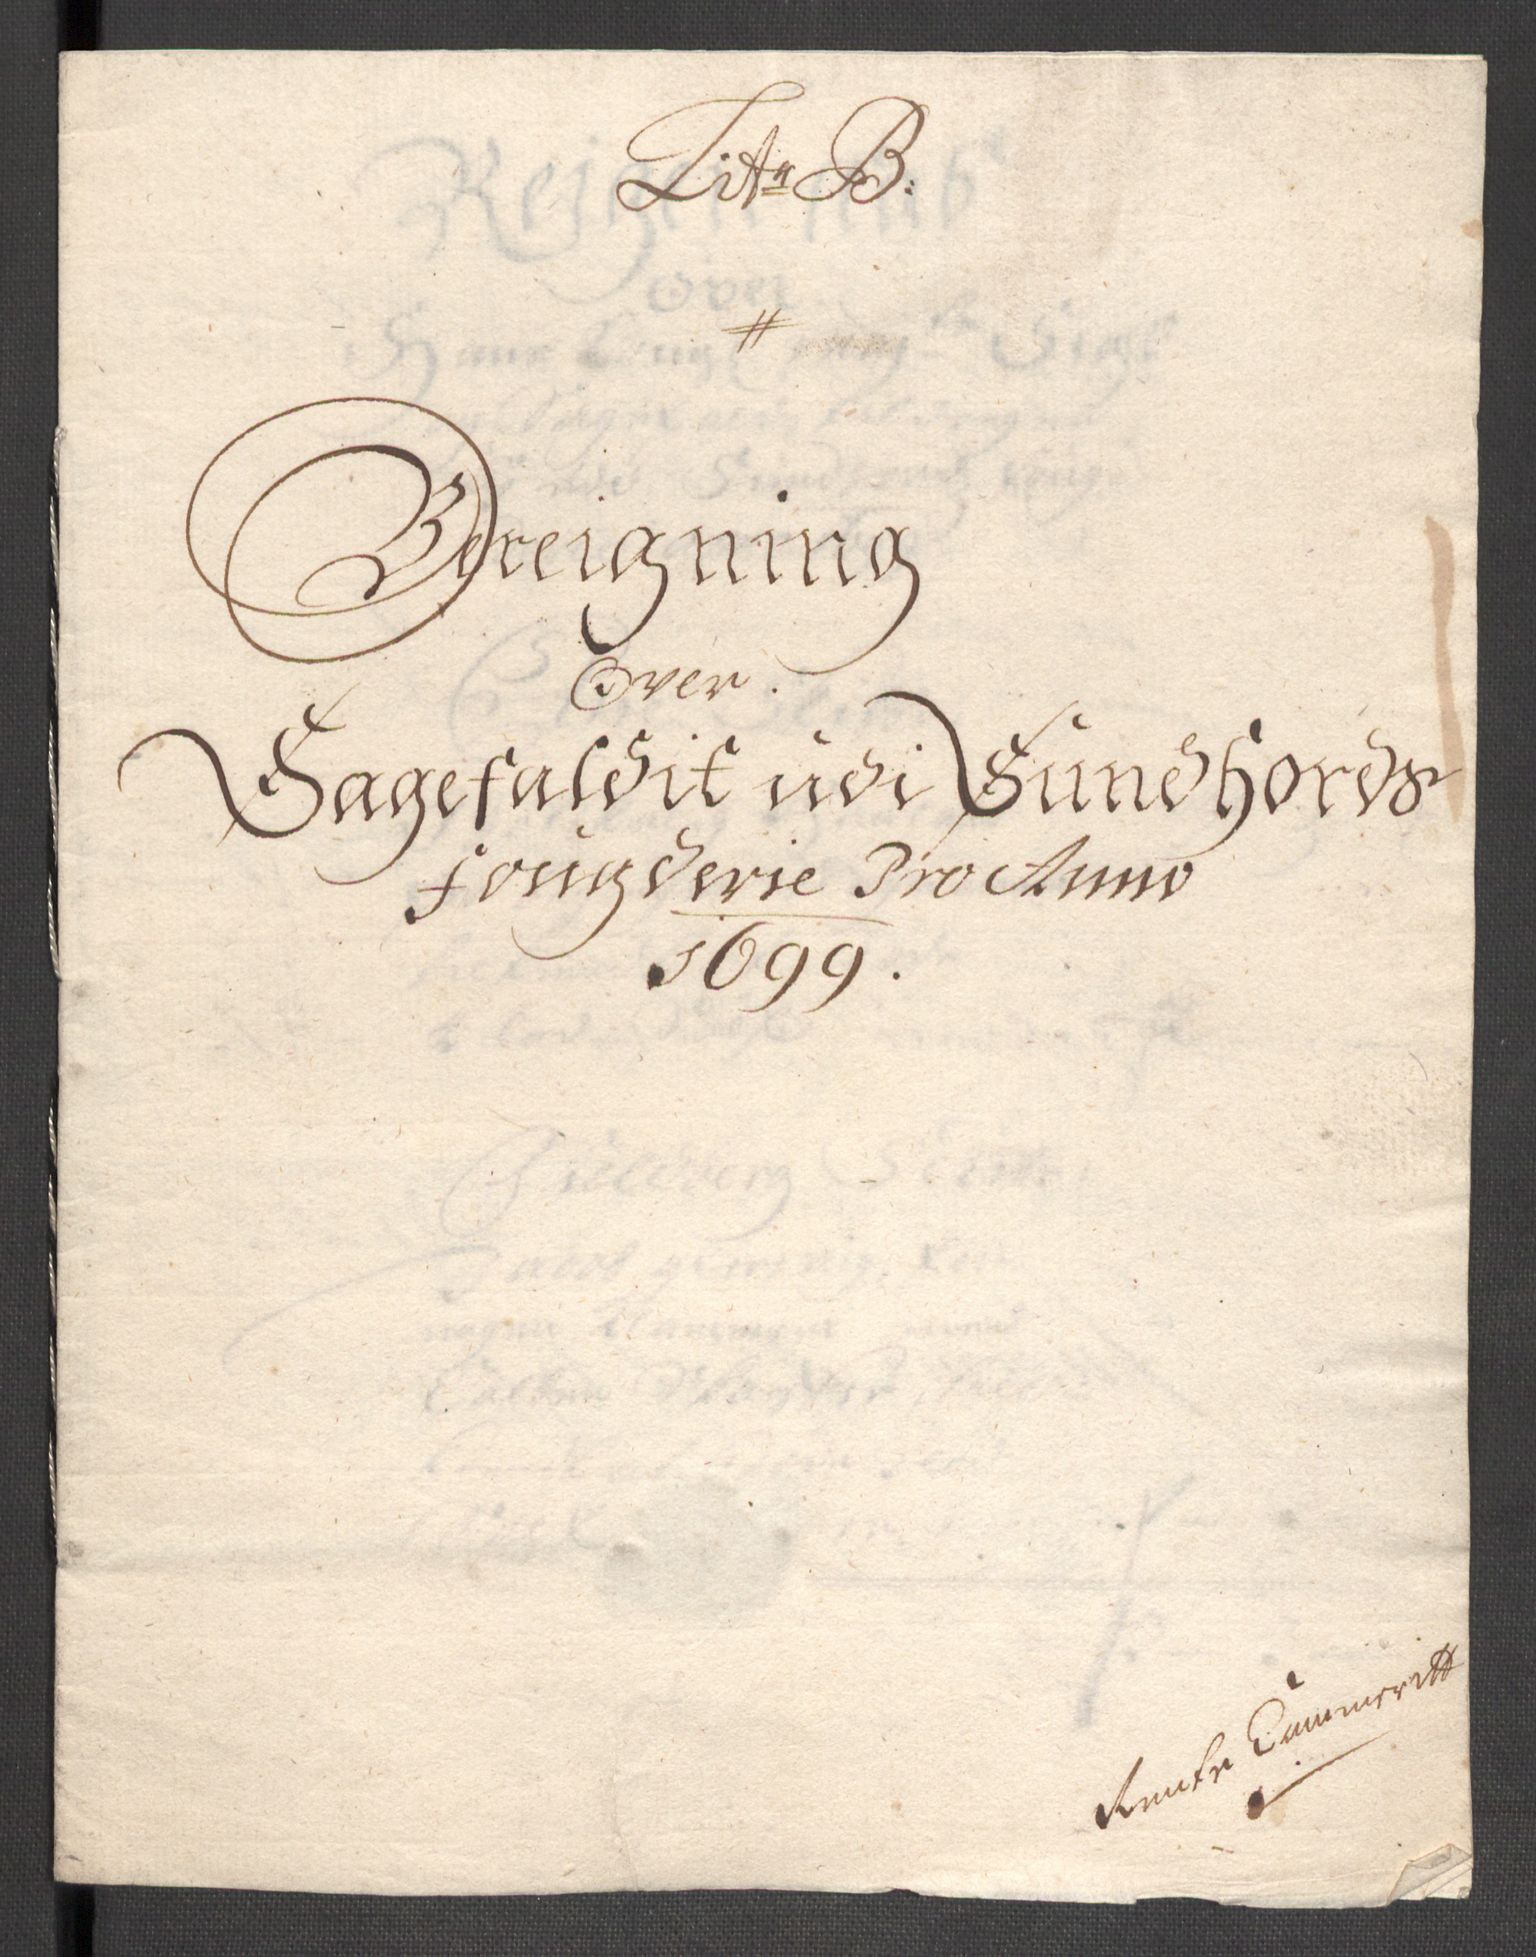 Litr B:
Bereigning
Over
Sagefaldit udi Sundhords
fougderie Pro Anno
1699.
Rente Cammeritt